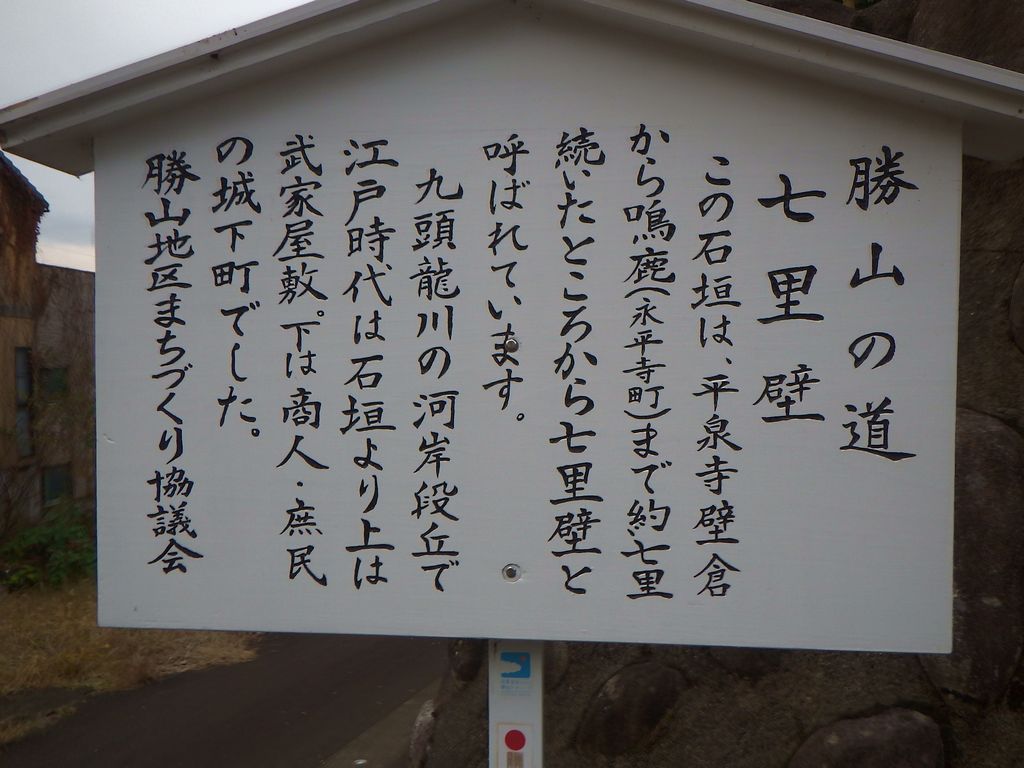 勝山の道
七里壁
この石垣は、平泉寺壁倉
から鳴鹿(永平寺町)まで約七里
続いたところから七里壁と
呼ばれています。
九頭龍川の河岸段丘で
江戸時代は石垣より上は
武家屋敷。下は商人・庶民
の城下町でした。
勝山地区まちづくり協議会